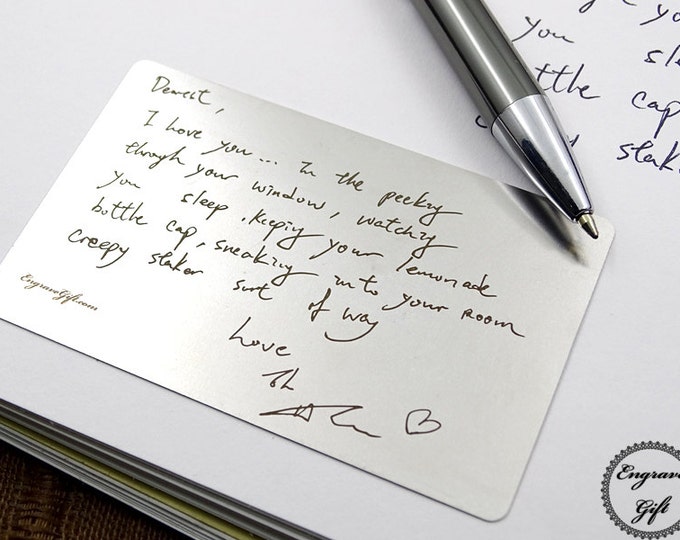 Dearest,
I love you... In the peeking
through your window, watching
you sleep, keeping your lemonade
bottle cap, sneaking into your room
creepy stalker sort of way
Love
EngraveGift.com
you
bottle cap
Engrave
Gift